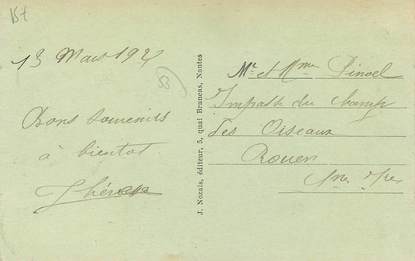 15f
13 Mars 192
53
Bons souvenirs
à bientot
Thérèse
J. Nozais, éditeur, 5, quai Brancas, Nantes
Mr et Mme Pinoel
Impasse du champ
des Oiseaux
Rouen
Sne Ire